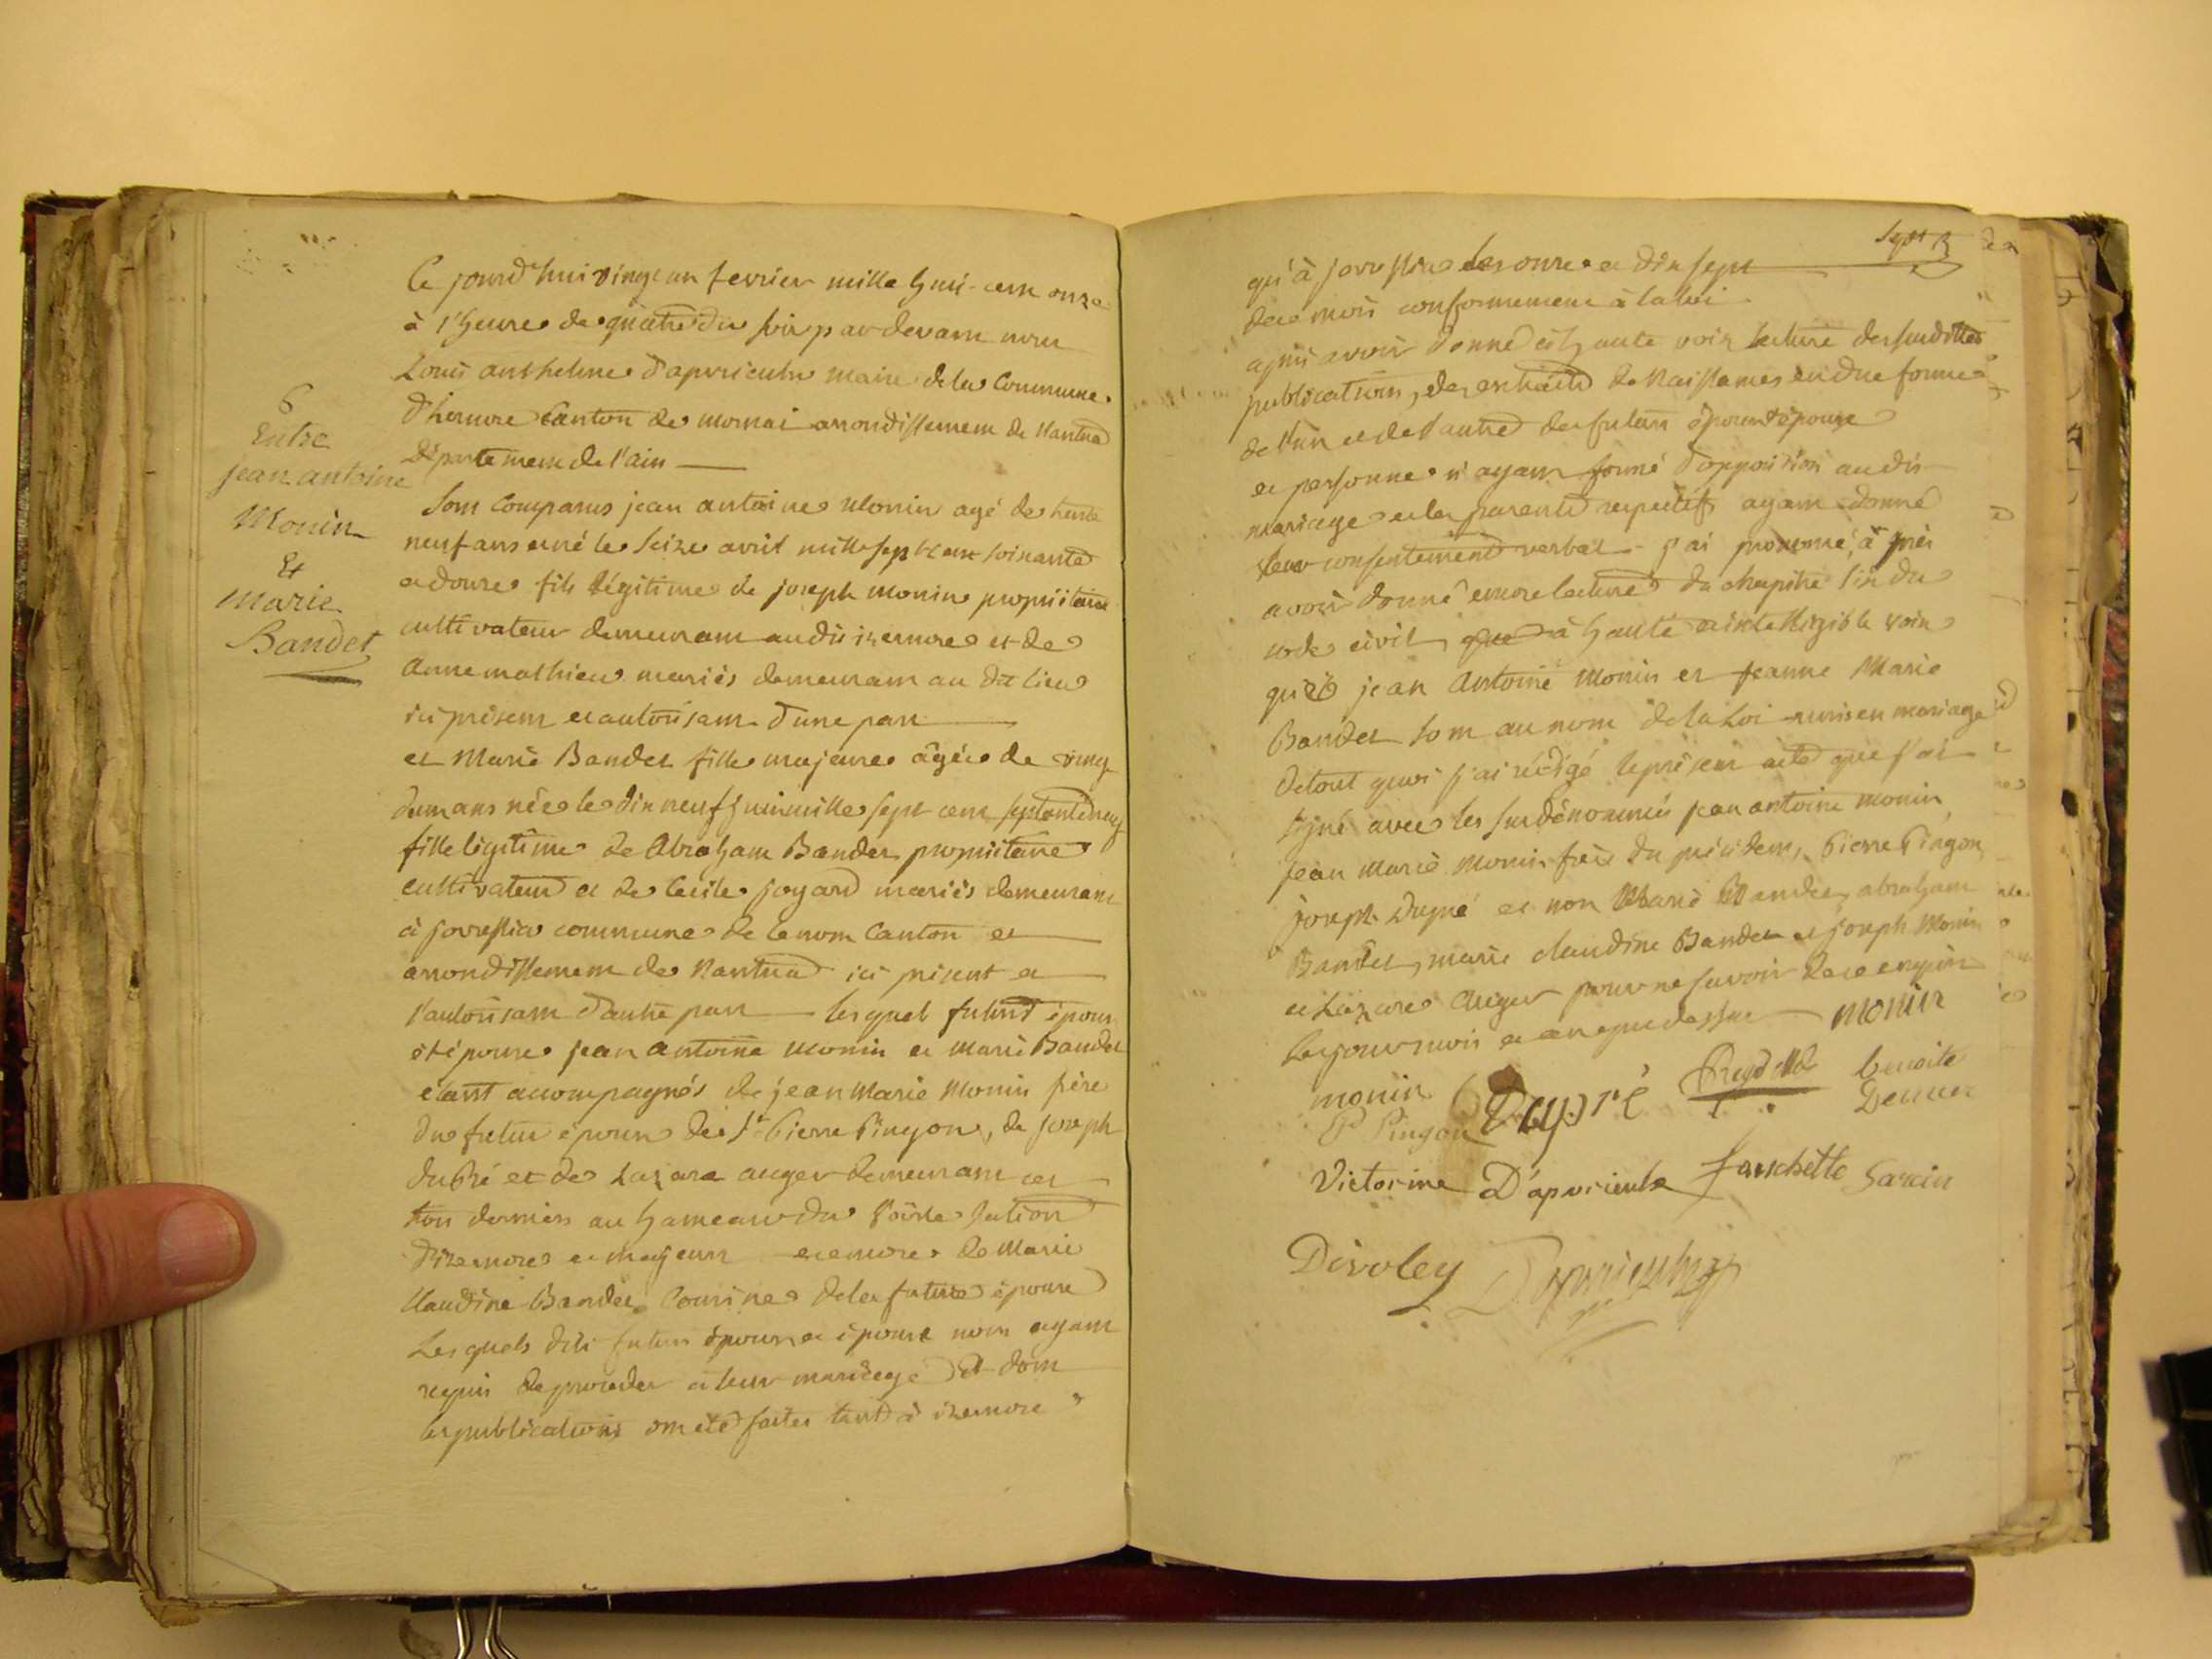 6
Entre
jean antoine
Monin
Et
Marie
Bandet
Ce jourd'hui vingt un fevrier mille huit cent onze
à l'heure de quatre du soir par devant nous
Louis anthelme d'apvrieulx maire de la Commune
d'hernore Canton de mornai arrondissement de Nantua
Département de l'ain
Sont comparus jean antoine Monin agé de trente
neuf ans né le Seize avril mille sept cent soixante
et douze fils légitime de joseph monin propriétaire
cultivateur demeurant audit izernore et de
Anne mathieu mariés demeurant au dit lieu
ici présent et autorisant d'une part
et Marie Bandet fille majeure âgée de vingt
ans née le dix neuf juin mille sept cent septante neuf
fille légitime de Abraham Bandet propriétaire
cultivateur et de Cécile joyard mariés demeurant
à jovressia commune de ce nom Canton et
arrondissement de Nantua ici présent et
l'autorisant d'autre part lesquels futurs époux
et épouse jean antoine Monin et Marie Bandet
étant accompagnés de jean Marie Monin frère
du futur époux de Sr Pierre Pingon, de joseph
dupré et de Lazare auger demeurant ces
trois derniers au hameau du
d'izernore et majeurs et encore de Marie
Claudine Bandet Cousine de la future épouse
Lesquels dits futurs époux et épouse nous ayant
requis de procéder à leur mariage et dont
les publications ont été faites tant à izernore
sept
qu'à jovressia les onze et dix sept
de ce mois conformement à la loi
après avoir donné à haute voix lecture des susdittes
publications, des extraits de Naissances en due forme
de l'un et de l'autre des futurs époux et épouse
et personne n'ayant formé d'opposition audit
mariage et les parents respectifs ayant donné
leur consentement verbal j'ai prononcé, après
avoir donné encore lecture du chapitre six du
code civil, que à haute et intelligible voix
que jean Antoine Monin et Jeanne Marie
Bandet sont au nom de la Loi unis en mariage
de tout quoi j'ai rédigé le présent acte que j'ai
signé avec les susdénommés jean antoine monin
Jean Marie Monin frère du précédent, Pierre Pingon
joseph Dupré et non Marie Bandet, abraham
Bandet, marie claudine Bandet et joseph Monin
et Lazare Auger pour ne savoir de ce enquis
les jour mois et an que dessus monin
monin Dupré Reydellet benoite
P Pingon
Victorine D'apvrieulx fanchette Sarcin
Divoley D'apvrieulx